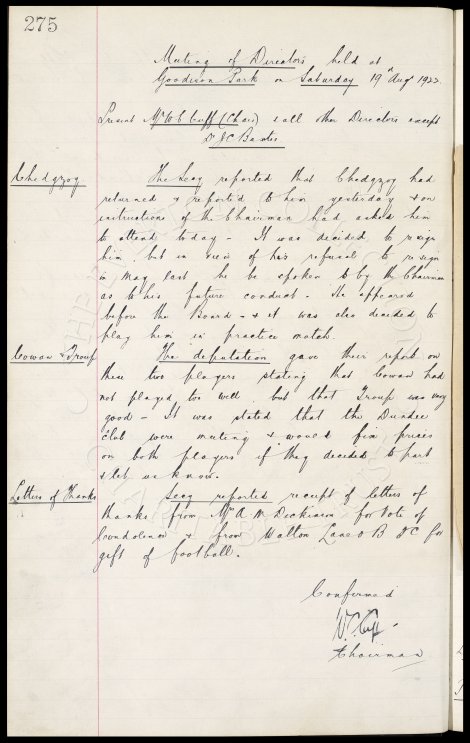 275
Meeting of Directors held at
Goodison Park on Saturday 19th Aug 1922
Present Mr W C Cuff (Chair) & all other Directors except
Dr J C Baxter
Chedgzoy The Secy reported that Chedgzoy had
returned & reported to him yesterday & on
instructions of the Chairman had asked him
to attend today - It was decided to resign
him but in view of his refusal to resign
in May last he be spoken to by the Chairman
as to his future conduct. He appeared
before the Board - & it was also decided to
play him in practice match.
Cowan & Troup The deputation gave their report on
these two players stating that Cowan had
not played too well but that Troup was very
good - It was stated that the Dundee
Club were meeting & would fix prices
on both players if they decided to part
& let us know.
Letters of Thanks Secy reported receipt of letters of
thanks from Mrs A M Dickinson for Vote of
Condolence & from Walton Lane O B FC for
gift of football.
Confirmed
W.C. Cuff
Chairman